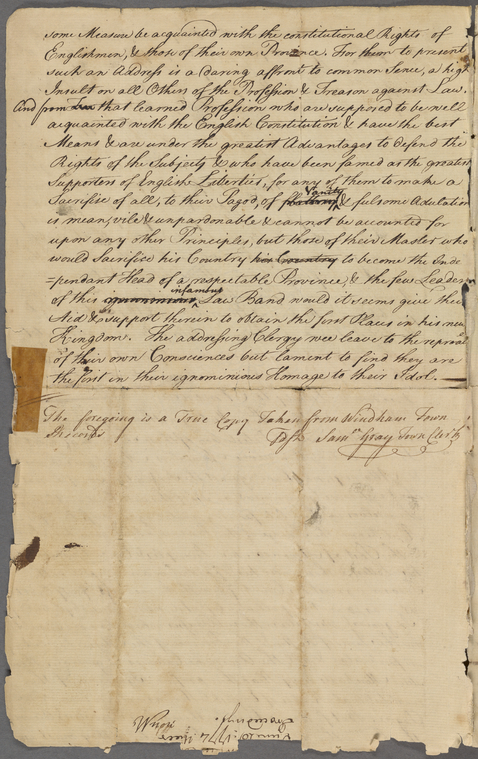 some Measure be acquainted with the constitutional Rights of
Englishmen, & those of their own Province. For them to present
such an Address is a daring affront to common Sence, a high
Insult on all Others of the Profession & Treason against Law.
And from that learned Profession who are supposed to be well
acquainted with the English Constitution & have the best
Means & are under the greatest Advantages to defend the
Rights of the Subjects & who have been famed as the greatest
Supporters of English Liberties, for any of them to make a
Sacrifice of all, to their Pagod, of Vanity & fulsome Adulation
is mean, vile & unpardonable & cannot be accounted for
upon any other Principles, but those of their Master who
would Sacrifice his Country his Country to become the Inde
=pendant Head of a respectable Province, & the few Leaders
of this infamous Law Band would it seems give their
Aid & support therein to obtain the first Places in his new
Kingdom. The addressing Clergy wee leave to the reproach
of their own Consciences but lament to find they are
the first in their ignominious Homage to their Idol.
The foregoing is a True Copy Taken from Windham Town
Records Saml. Gray Town Clerk
1774